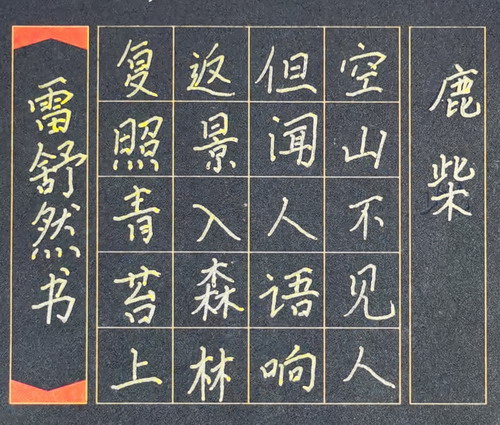 鹿柴
空山不见人
但闻人语响
返景入森林
复照青苔上
雷舒然书